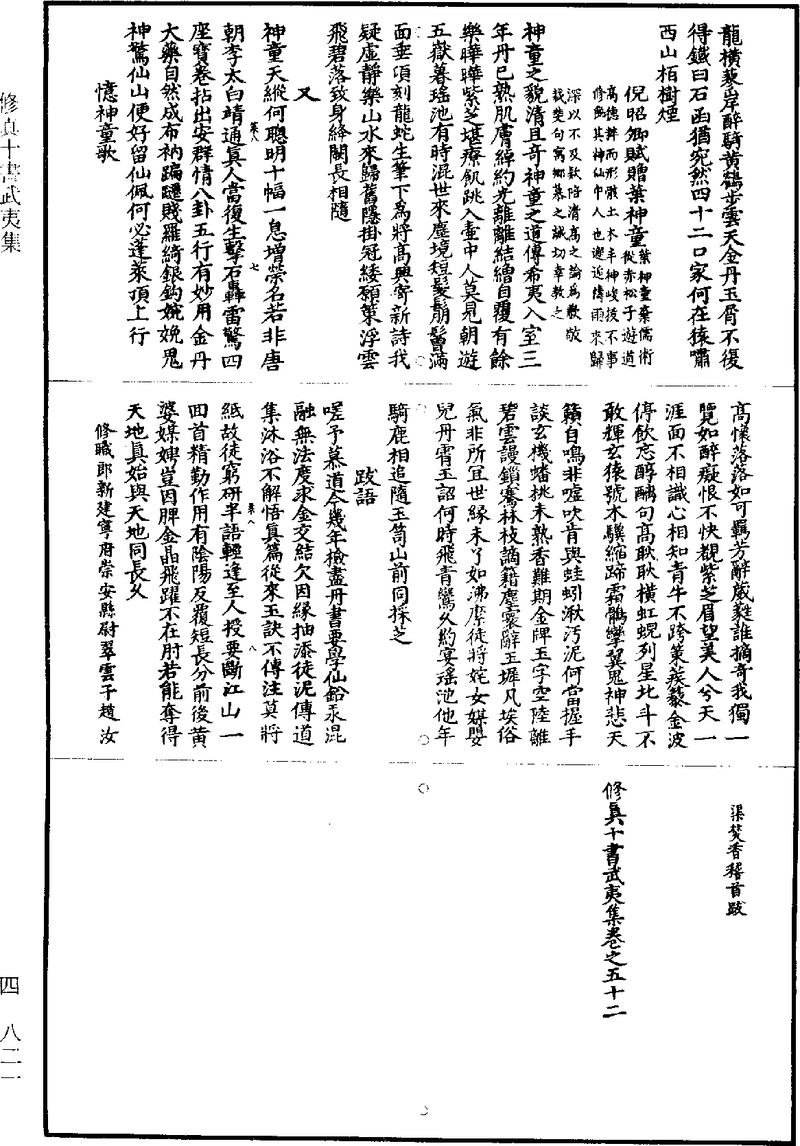 龍橫蓼岸醉騎黃鶴步雲天金丹玉屑不復
得鐵臼石函猶宛然四十二口家何在猿嘯
西山栢樹煙
倪昭卿賦贈葉神童
葉神童棄儒術從赤松子遊道
高德粹而形骸土木丰神峻拔不事
修飾其神仙中人也邂逅傳雨來歸
深以不及欵陪清高之論為歉敬
裁斐句寓鄉慕之誠切幸教之
神童之貌清且奇神童之道傳希夷入室三
年丹已熟肌膚綽約光離離結繒自覆有餘
樂曄曄紫芝堪療飢跳入壺中人莫見朝遊
五嶽暮瑤池有時混世來塵境短髮鬅鬙滿
面垂項刻龍蛇生筆下為將高興寄新詩我
疑虛靜樂山水來歸舊隱掛冠緌願策浮雲
飛碧落致身絳闕長相隨
又
神童天縱何聰明十幅一息增榮名若非唐
朝李太白靖通真人當復生擊石轟雷驚四
座寶卷拈出安群情八卦五行有妙用金丹
大藥自然成布衲蹁躚賤羅綺銀鈎婉娩鬼
神驚仙山便好留仙佩何必蓬萊頂上行
憶神童歌
高懷落落如可羈芳辭葳蕤誰摘奇我獨一
覽如醉癡恨不快覩紫芝眉望美人兮天一
涯面不相識心相知青牛不跨策蒺藜金波
停飲忘醇醨句高耿耿橫虹蜺列星北斗不
敢輝玄猿號木驥縮蹄霜鶻攣翼鬼神悲天
籟自鳴非噓吹肯與蛙蚓湫汚泥何當握手
談玄機蟠桃未熟香難期金牌玉字空陸離
碧雲謾鎖騫林枝謫籍塵寰辭玉墀凡埃俗
氣非所宜世緣未了如沸糜徒將姹女媒嬰
兒丹霄玉詔何時飛青鸞久約宴瑤池他年
騎鹿相追隨玉笥山前同採芝
跋語
嗟予慕道今幾年檢盡丹書要學仙鉛汞混
融無法度求金交結欠因緣抽添徒泥傳道
集沐浴不解悟真篇從來玉訣不傳注莫將
紙故徒窮研半語輕逢至人授要斷江山一
回首精勤作用有陰陽反覆短長分前後黃
婆媒娉豈因脾金晶飛躍不在肘若能奪得
天地真始與天地同長久
修職郎新建寧府崇安縣尉翠雲子趙汝
渠焚香稽首跋
修真十書武夷集卷之五十二
修真十書武夷集
四 八二一